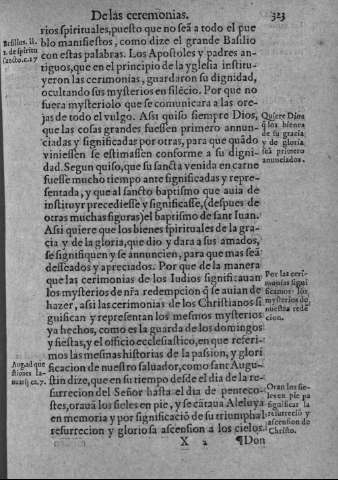 De las ceremonias. 323
rios spirituales, puesto que no seã a todo el pue
blo manifiestos, como dize el grande Basilio
con estas palabras. Los Apostoles y padres an-
tiguos, que en el principio de la yglesia institu-
yeron las cerimonias, guardaron su dignidad,
ocultando sus mysterios en silẽcio. Por que no
fuera mysterioso que se comunicara a las ore-
jas de todo el vulgo. Assi quiso siempre Dios,
que las cosas grandes fuessen primero annun-
ciadas y significadas por otras, para que quãdo
viniessen se estimassen conforme a su digni-
dad. Segun quiso, que su sancta venida en carne
fuesse mucho tiempo ante significadas y repre-
sentada, y que al sancto baptismo que auia de
instituyr precediesse y significasse, (despues de
otras muchas figuras) el baptismo de sant Iuan.
Assi quiere que los bienes spirituales de la gra-
cia y de la gloria, que dio y dara a sus amados,
se signifiquen y se annuncien, para que mas seã
desseados y apreciados. Por que de la manera
que las cerimonias de los Iudios significauan
los mysterios de nr̃a redempcion q̃ se auian de
hazer, assi las cerimonias de los Christianos si
guifican y representan los mesmos mysterios
ya hechos, como es la guarda de los domingos
y fiestas, y el officio ecclesiastico, en que referi-
mos las mesinas historias de la passion, y glori
ficacion de nuestro saluador, como sant Augu-
stin dize, que en su tiempo desde el dia de la re-
surrecion del Señor hasta el dia de penteco-
stes, orauã los fieles en pie, y se cãtaua Aleluya
en memoria y por significaciõ de su triumphal
resurrecion y gloriosa ascension a los cielos.
X 2 ¶Don
Basilius. li.
de spiritu
sancto. c. 27
Quiere Dios
q̃ los bienes
de su gracia
y de gloria,
seã primero
annunciados.
Por las ceri-
monias signi
ficamos los
mysterios de
nuestra rede
cion.
Aug. ad que
stiones Ia-
nuarij ca. 7.
Oran los fie-
les en pie pa
significar la
resurreciõ y
ascension de
Christo.